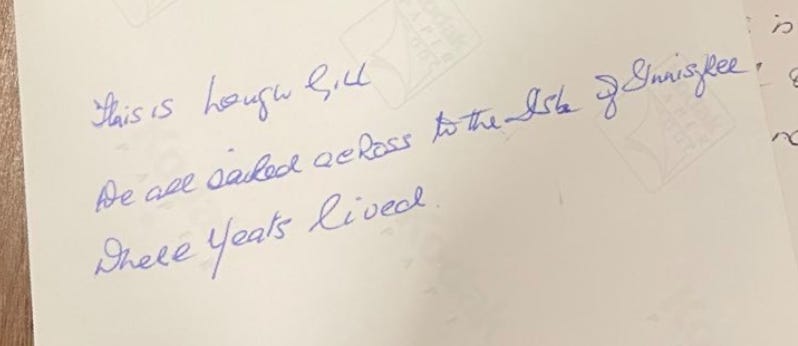 This is Lough Gill
We all sailed across to the Isle of Innisfree
Where Yeats lived.
is
Kodak
PAPER